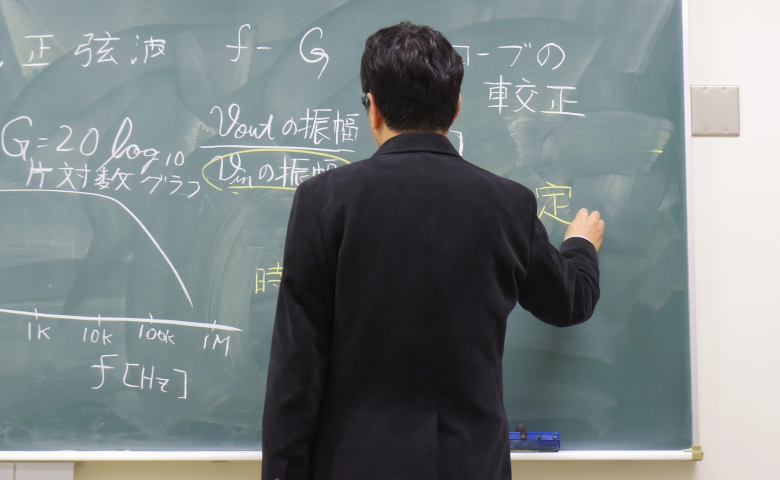 正弦波 f-G ローブの
較正
G=20 log10 Voutの振幅
Vinの振幅
片対数グラフ
定
時
1K 10K 100K 1M
f [Hz]